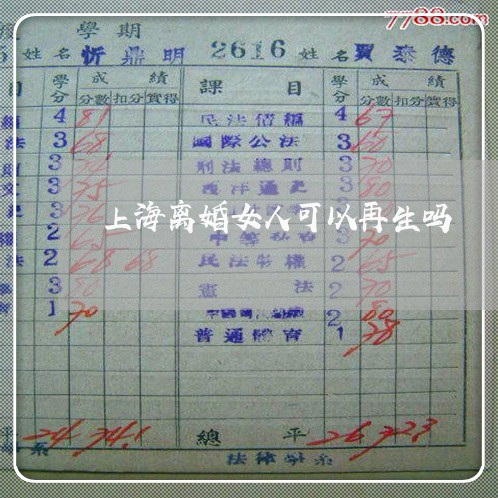 7788.com
學期
姓名 忻鼎明 2616 姓名 賈泰德
目 學分 成績 課目 學分 成績
分數 扣分 實得 分數 扣分 實得
4 81 民法債編 4 67
法 3 68 國際公法 3 60
則 3 刑法總則 3 70
文 3 75 西洋通史 3 80
史 3 76 3
上海离婚女人可以再生吗
權 2 65 中等 3 70
法 2 68 68 民法物權 2 65
3 80 憲法 2 70
育 1 70 中國 2 80
普通體育 1 78
平 24 74.1 總平 26 72.3
系 法律學系